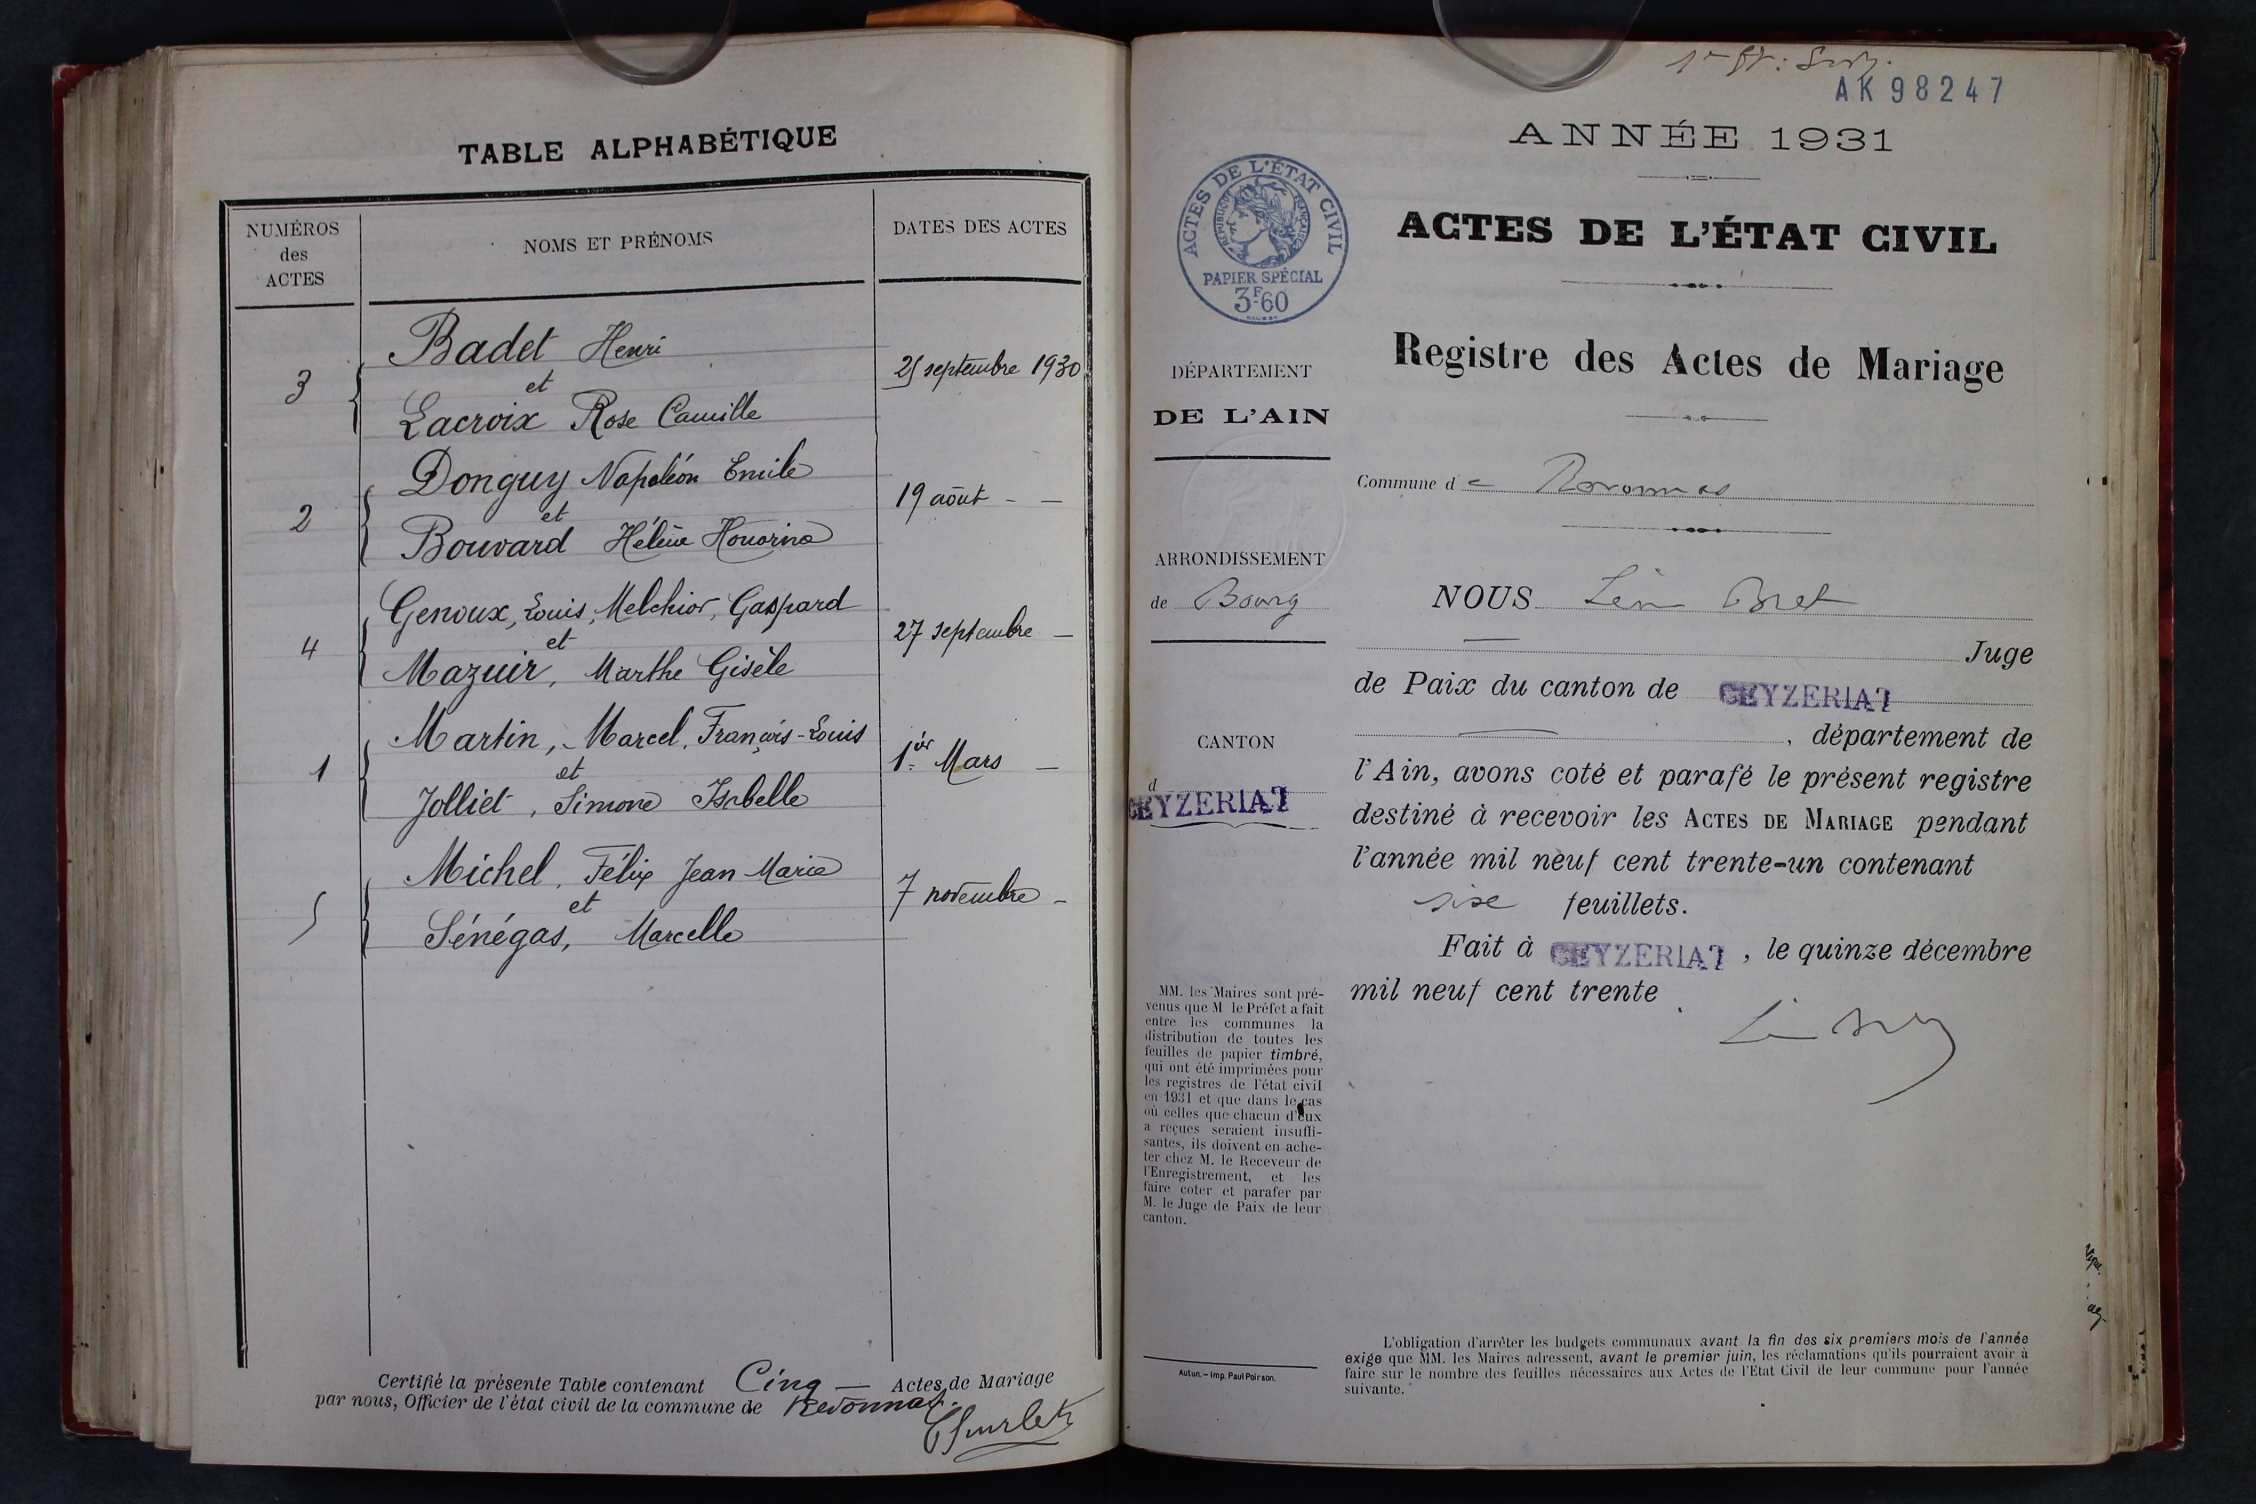 TABLE ALPHABÉTIQUE
NUMÉROS
des
ACTES
NOMS ET PRÉNOMS
DATES DES ACTES
Badet Henri
3
et
25 septembre 1930
Lacroix Rose Camille
Donguy Napoléon Emile
2
et
19 août - -
Bouvard Hélène Honorine
Genoux, Louis, Melchior, Gaspard
4
et
27 septembre -
Mazuir, Marthe Gisèle
Martin, Marcel, François-Louis
1
et
1er Mars -
Jolliet, Simone Isabelle
Michel, Félix Jean Marie
5
et
7 novembre -
Sénégas, Marcelle
Certifié la présente Table contenant Cinq — Actes de Mariage
par nous, Officier de l'état civil de la commune de Revonnas.
AK 98247
ANNÉE 1931
ACTES DE L'ÉTAT CIVIL
RÉPUBLIQUE FRANÇAISE
PAPIER SPÉCIAL
3F60
ACTES DE L'ÉTAT CIVIL
Registre des Actes de Mariage
DÉPARTEMENT
DE L'AIN
ARRONDISSEMENT
de Bourg
CANTON
d
CEYZERIAT
MM. les Maires sont pré-
venus que M le Préfet a fait
entre les communes la
distribution de toutes les
feuilles de papier timbré,
qui ont été imprimées pour
les registres de l'état civil
en 1931 et que dans le cas
où celles que chacun d'eux
a reçues seraient insuffi-
santes, ils doivent en ache-
ter chez M. le Receveur de
l'Enregistrement, et les
faire coter et parafer par
M. le Juge de Paix de leur
canton.
Autun. — Imp. Paul Poirson.
Commune de Revonnas
NOUS Léon Bret
Juge
de Paix du canton de CEYZERIAT
, département de
l'Ain, avons coté et parafé le présent registre
destiné à recevoir les ACTES DE MARIAGE pendant
l'année mil neuf cent trente-un contenant
six feuillets.
Fait à CEYZERIAT, le quinze décembre
mil neuf cent trente
L'obligation d'arrêter les budgets communaux avant la fin des six premiers mois de l'année
exige que MM. les Maires adressent, avant le premier juin, les réclamations qu'ils pourraient avoir à
faire sur le nombre des feuilles nécessaires aux Actes de l'Etat Civil de leur commune pour l'année
suivante.